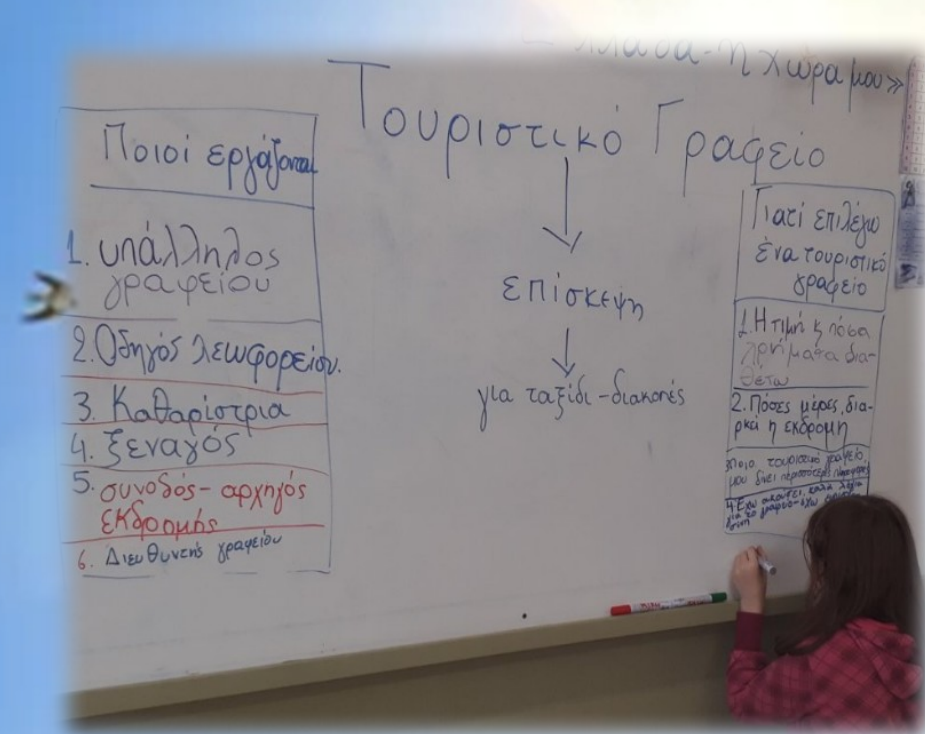 χώρα μου»
Τουριστικό Γραφείο
επίσκεψη
για ταξίδι-διακοπές
Ποιοί εργάζονται
1. υπάλληλος
γραφείου
2. Οδηγός λεωφορείου.
3. Καθαρίστρια
4. ξεναγός
5. συνοδός - αρχηγός
εκδρομής
6. Διευθυντής γραφείου
Γιατί επιλέγω
ένα τουριστικό
γραφείο
1. Η τιμή κ πόσα
χρήματα δια-
θέτω
2. Πόσες μέρες, δια-
ρκεί η εκδρομή
3. Ποιο τουριστικό γραφείο,
μου δίνει περισσότερες
4. Έχω ακούσει καλά λόγια
για το γραφείο - έχω